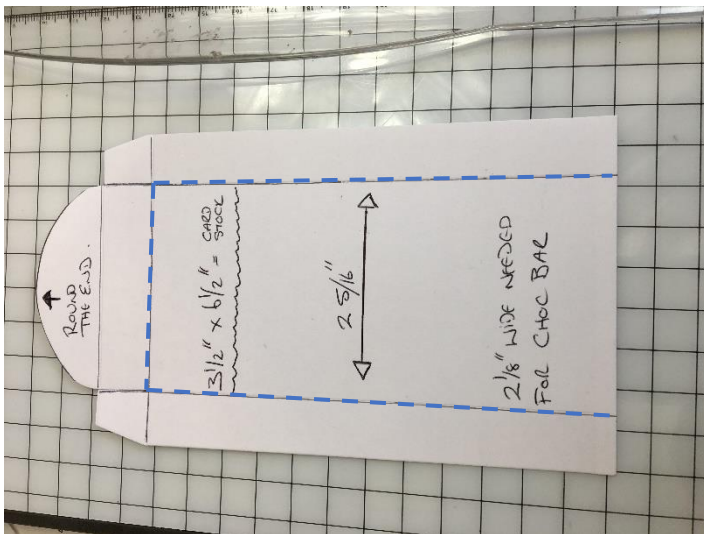 ROUND
THE END.
3 1/2" x 6 1/2" = CARD
STOCK
2 5/16"
2 1/8" WIDE NEEDED
FOR CHOC BAR